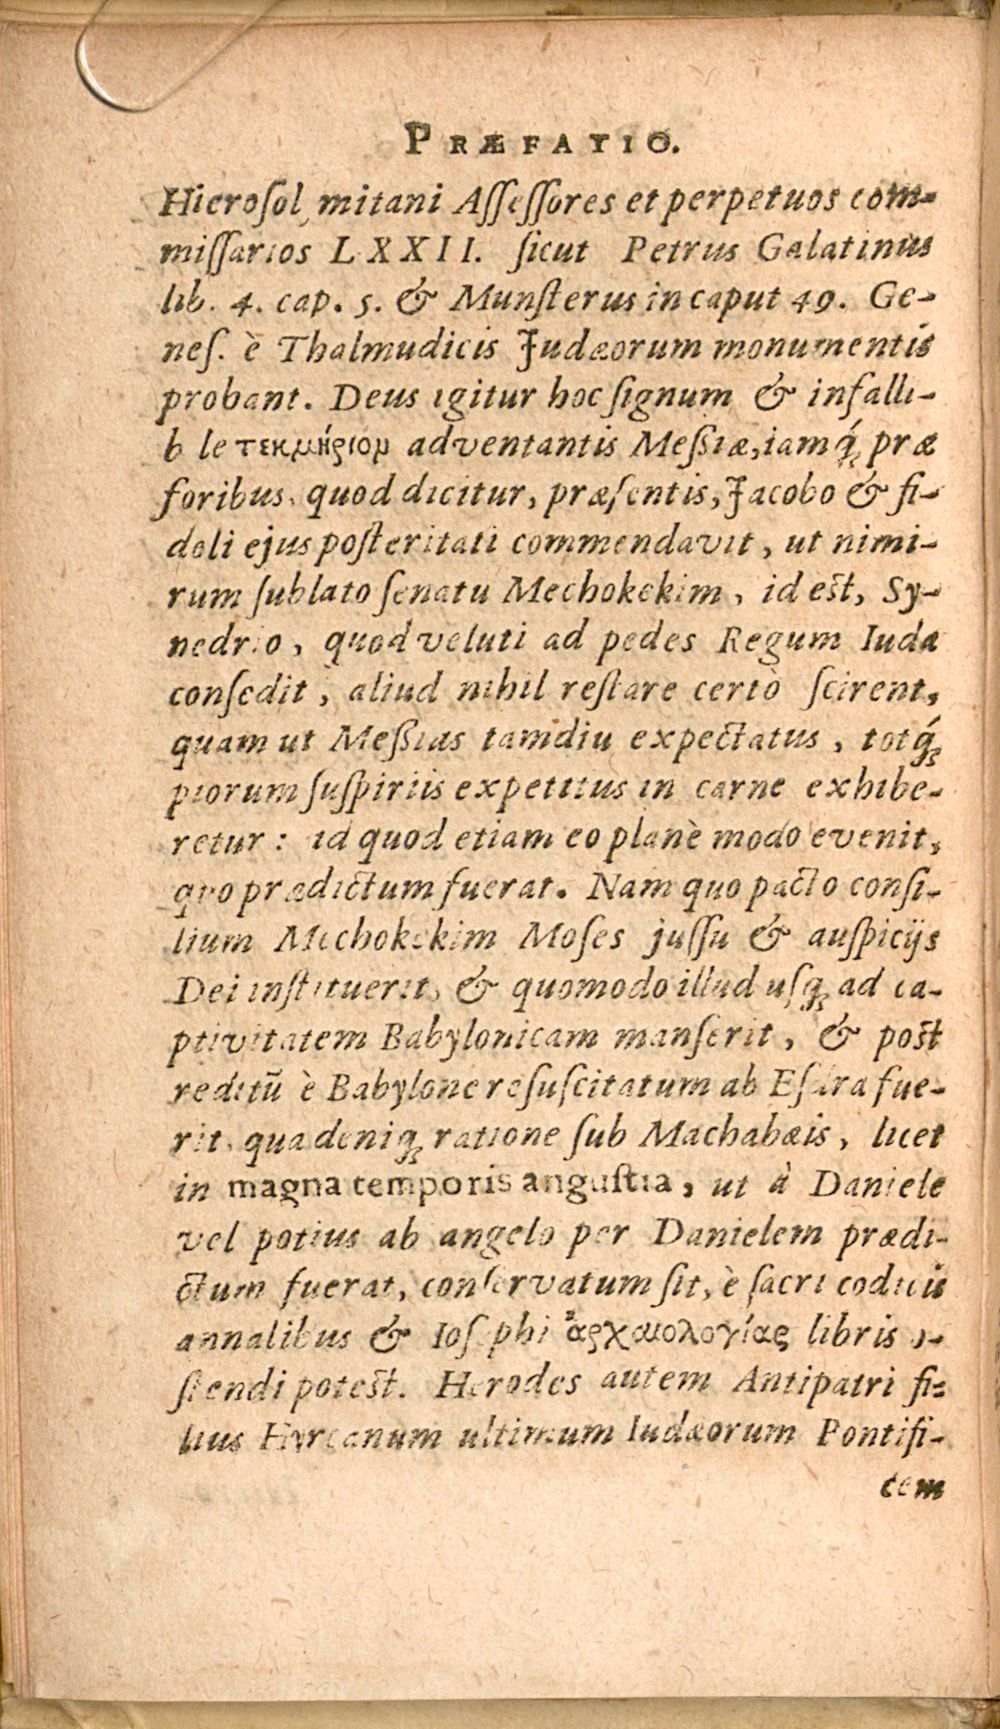 PRÆFATIO.
Hieroſol mitani Aſſeſſores et perpetuos com-
miſſarios LXXII. ſicut Petrus Galatinus
lib. 4. cap. 5. & Munſterus in caput 49. Ge-
neſ. è Thalmudicis Judæorum monumentis
probant. Deus igitur hoc ſignum & infalli-
b le τεκμήριον adventantis Meſſiæ, iamq́; præ
foribus, quod dicitur, præſentis, Jacobo & fi-
deli ejus poſteritati commendavit, ut nimi-
rum ſublato ſenatu Mechokekim, id eſt, Sy-
nedrio, quod veluti ad pedes Regum Iuda
conſedit, aliud nihil reſtare certò ſcirent,
quam ut Meſſias tamdiu expectatus, totq́;
piorum ſuſpiriis expetitus in carne exhibe-
retur: id quod etiam eo planè modo evenit,
quo prædictum fuerat. Nam quo pacto conſi-
lium Mechokekim Moſes juſſu & auſpicijs
Dei inſtituerit, & quomodo illud uſq; ad ca-
ptivitatem Babylonicam manſerit, & poſt
reditũ è Babylone reſuſcitatum ab Eſdra fue-
rit, qua deniq; ratione ſub Machabæis, licet
in magna temporis anguſtia, ut à Daniele
vel potius ab angelo per Danielem prædi-
ctum fuerat, conſervatum ſit, è ſacri codicis
annalibus & Ioſephi ἀρχαιολογίας libris o-
ſtendi poteſt. Herodes autem Antipatri fi-
lius Hyrcanum ultimum Iudæorum Pontifi-
cem